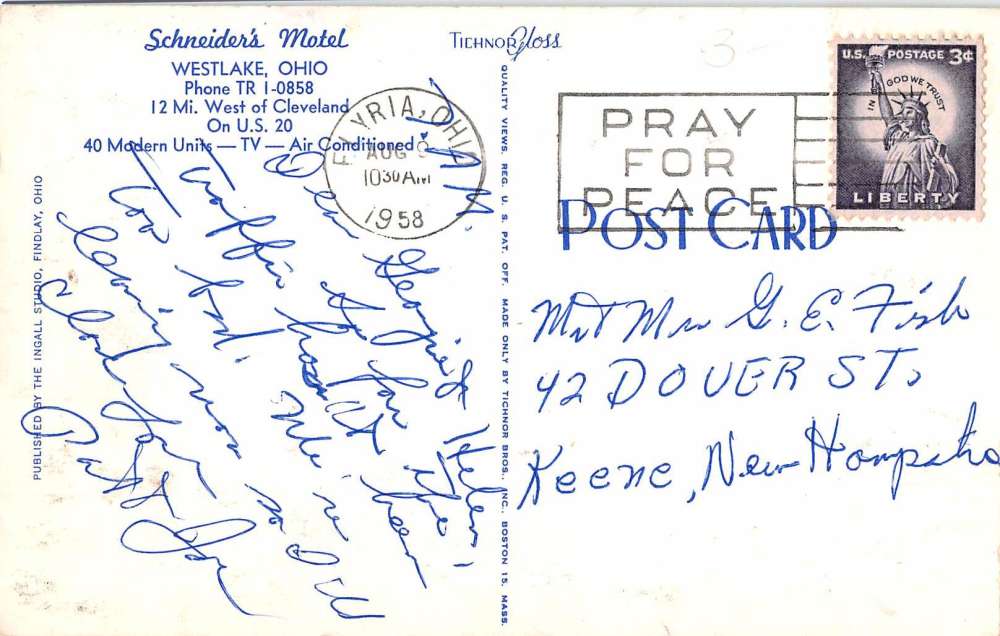 Schneider's Motel
WESTLAKE, OHIO
Phone TR 1-0858
12 Mi. West of Cleveland
On U.S. 20
40 Modern Units — TV — Air Conditioned
TICHNOR Gloss
QUALITY VIEWS. REG. U. S. PAT. OFF. MADE ONLY BY TICHNOR BROS., INC., BOSTON 15, MASS.
PUBLISHED BY THE INGALL STUDIO, FINDLAY, OHIO
ELYRIA, OHIO
AUG
10 30 AM
1958
PRAY
FOR
PEACE
U.S. POSTAGE 3¢
IN GOD WE TRUST
LIBERTY
POST CARD
Dear George & Helen:
So far the
traffic has been
too bad. We're
leaving now
Pat &
Mr & Mrs G. E. Fish
42 DOVER ST.
Keene, New Hampshire